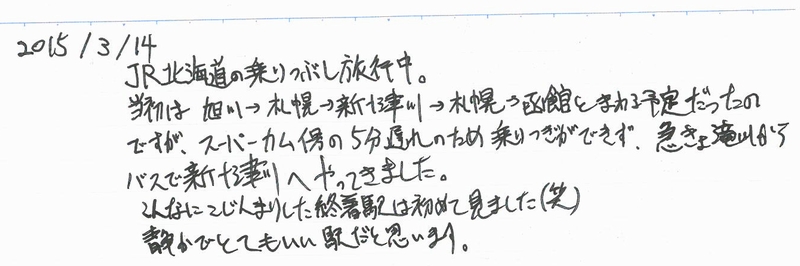 2015/3/14
JR北海道の乗りつぶし旅行中。
当初は 旭川→札幌→新十津川→札幌→函館とまわる予定だったの
ですが、スーパーカムイ号の5分遅れのため乗りつぎができず、急きょ滝川から
バスで新十津川へやってきました。
こんなにこじんまりした終着駅は初めて見ました(笑)
静かでとてもいい駅だと思います。